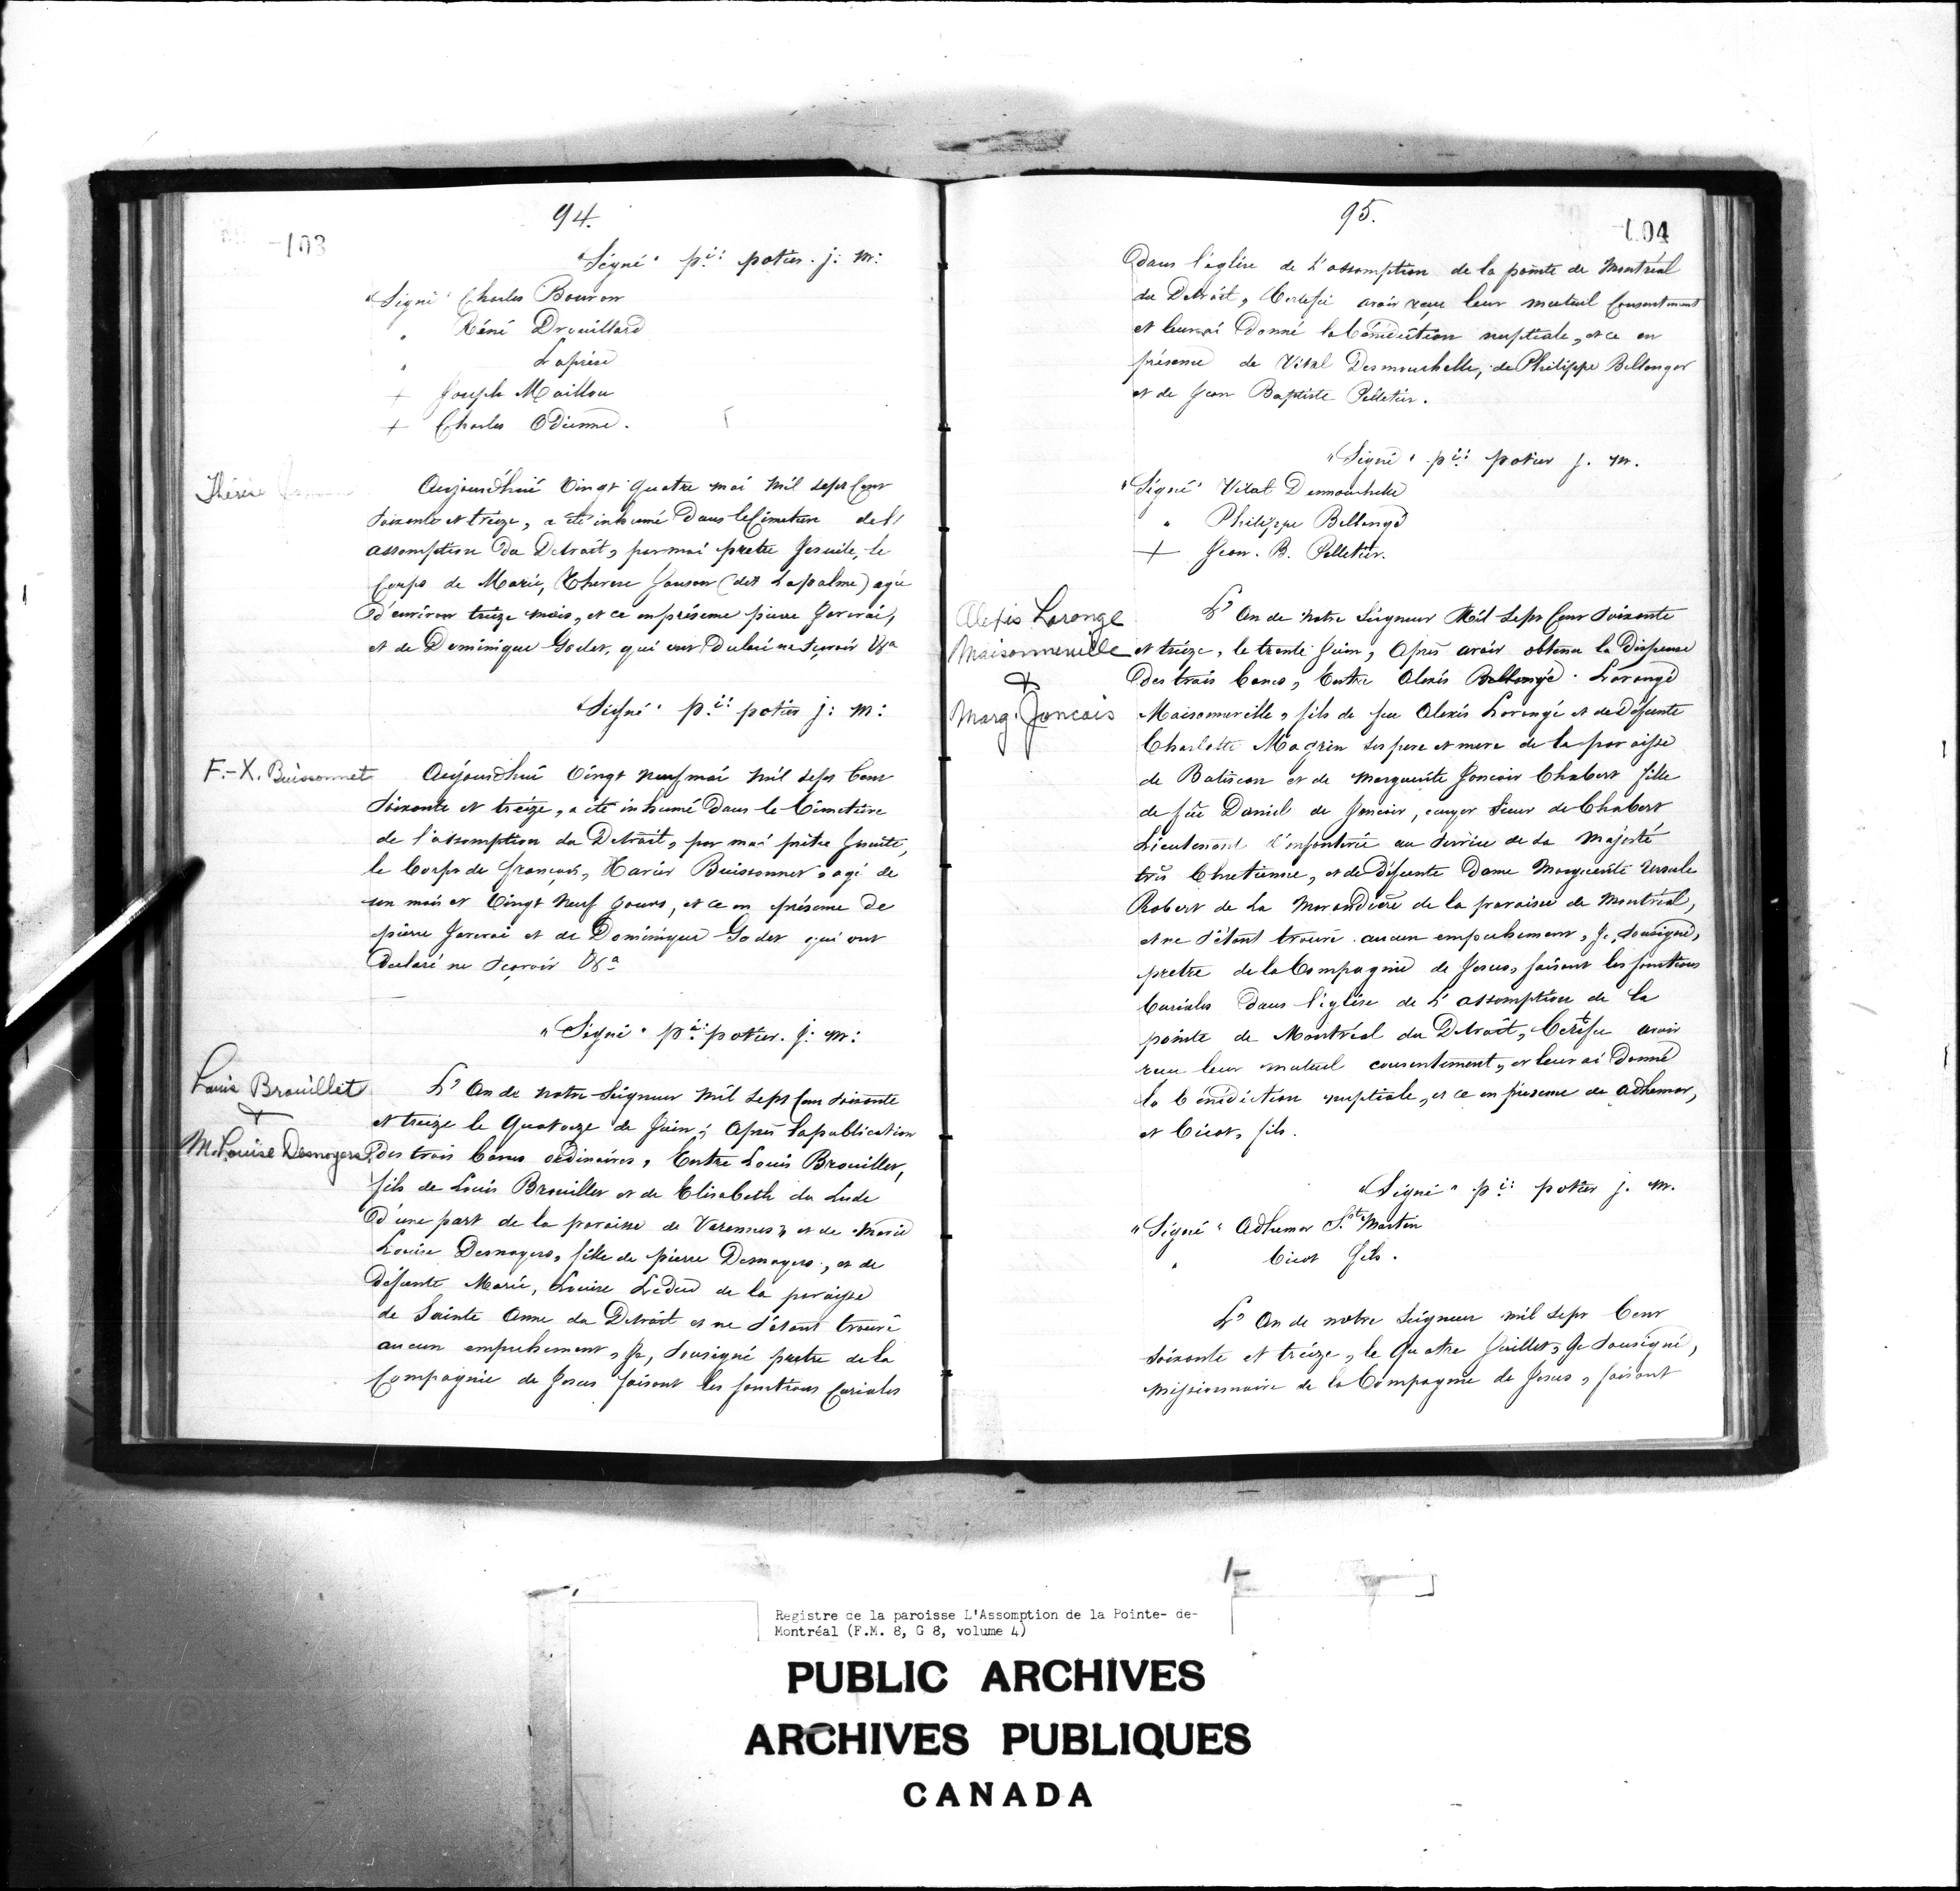 94.
-103
"Signé" p.i: potier. j: m:
"Signé" Charles Bouron
" Réné Drouillard
" Laprise
+ Joseph Maillou
+ Charles Odienne.
Thérèse
Aujourdhui Vingt Quatre mai Mil Sept Cent
Soixante et treize, a été inhumé Dans le Cimetiere del'
assomption Du Detroit, par moi pretre Jesuite, le
Corps de Marie, Therese Janson (dit Lapalme) agée
D'environ treize mois, et ce en présense pierre
et de Dominique Godet, qui ont Declaré ne Sçavoir
"Signé" p.i: potier j: m:
F.-X. Buissonnet
Aujourdhui Vingt neuf mai Mil Sept Cent
Soixante et treize, a été inhumé Dans le Cimetière
de l'assomption du Detroit, par moi prêtre Jesuite,
le Corps de François, Xavier Buissonnet, agé de
un mois et Vingt Neuf Jours, et ce en présense De
pierre et de Dominique Godet qui ont
Declaré ne Sçavoir
"Signé" p.i: potier. j: m:
Louis Brouillet
+
M. Louise Desnoyers
L'An de notre Seigneur Mil Sept Cent Soixante
et treize le Quatorze de Juin; Après la publication
Des trois bancs ordinaires, Entre Louis Brouillet,
fils de Louis Brouillet et de Elisabeth du Lude
D'une part de la paroisse de Varennes, et de Marie
Louise Desnoyers, fille de pierre Desnoyers, et de
Défunte Marie, Louise Leduc de la paroisse
de Sainte Anne du Detroit et ne S'étant trouvé
aucun empechement, Je, Sousigné pretre de la
Compagnie de Jesus faisant les fonctions Curiales
95.
104
Dans l'église de L'assomption de la pointe de Montréal
du Detroit, Certifié avoir reçu leur mutuel Consentement
et leur ai Donné la bénédiction nuptiale, et ce en
présense de Vital Desmouchelle, de Philippe Bellanger
et de Jean Baptiste Pelletier.
"Signé" p.i: potier j. m.
"Signé" Vital Desmouchelle
" Philippe Bellangé
+ Jean. B. Pelletier.
Alexis Lorange
Maisonneuville
+
Marg. Joncais
L'An de Notre Seigneur Mil Sept Cent Soixante
et treize, le trente Juin, Après avoir obtenu la Dispense
Des trois bancs, Entre Alexis Bellangé. Lorangé
Maisonneuville, fils de feu Alexis Lorangé et de Défunte
Charlotte Magrin Ses pere et mere de la paroisse
de Batiscan et de Marguerite Joncair Chabert fille
de feu Daniel de Joncair, ecuyer Sieur de Chabert
Lieutenant d'infanterie au Service de Sa Majesté
très Chretienne, et de Défunte Dame Marguerite Ursule
Robert de La Morandière de la paroisse de Montréal,
et ne S'étant trouvé aucun empechement, Je, Sousigné,
pretre de la Compagnie de Jesus, faisant les fonctions
Curiales Dans l'église de L'assomption de la
pointe de Montréal du Detroit, Certifié avoir
reçu leur mutuel consentement, et leur ai Donné
la bénédiction nuptiale, et ce en présense de Adhemar,
et Cicot, fils.
"Signé" p.i: potier j. m.
"Signé" Adhemar St. Martin
" Cicot fils.
L'An de notre Seigneur mil Sept Cent
Soixante et treize, le Quatre Juillet, Je Sousigné,
Missionnaire de la Compagnie de Jesus, faisant
Registre de la paroisse L'Assomption de la Pointe- de-
Montréal (F.M. 8, G 8, volume 4)
PUBLIC ARCHIVES
ARCHIVES PUBLIQUES
CANADA